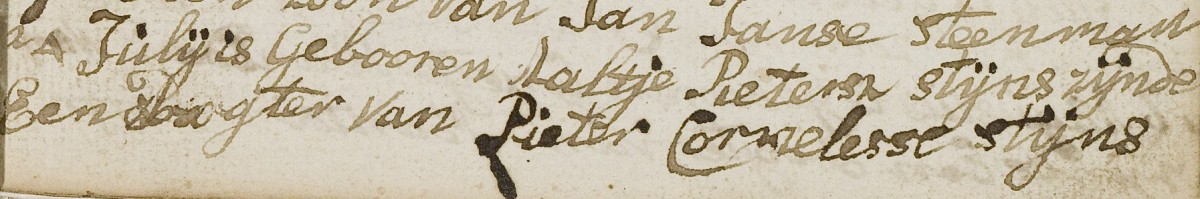 zoon van Jan Janse steenman
Julij is Gebooren Aaltje Pieters stijns zijnde
Een dogter van Pieter Cornelesse stijns